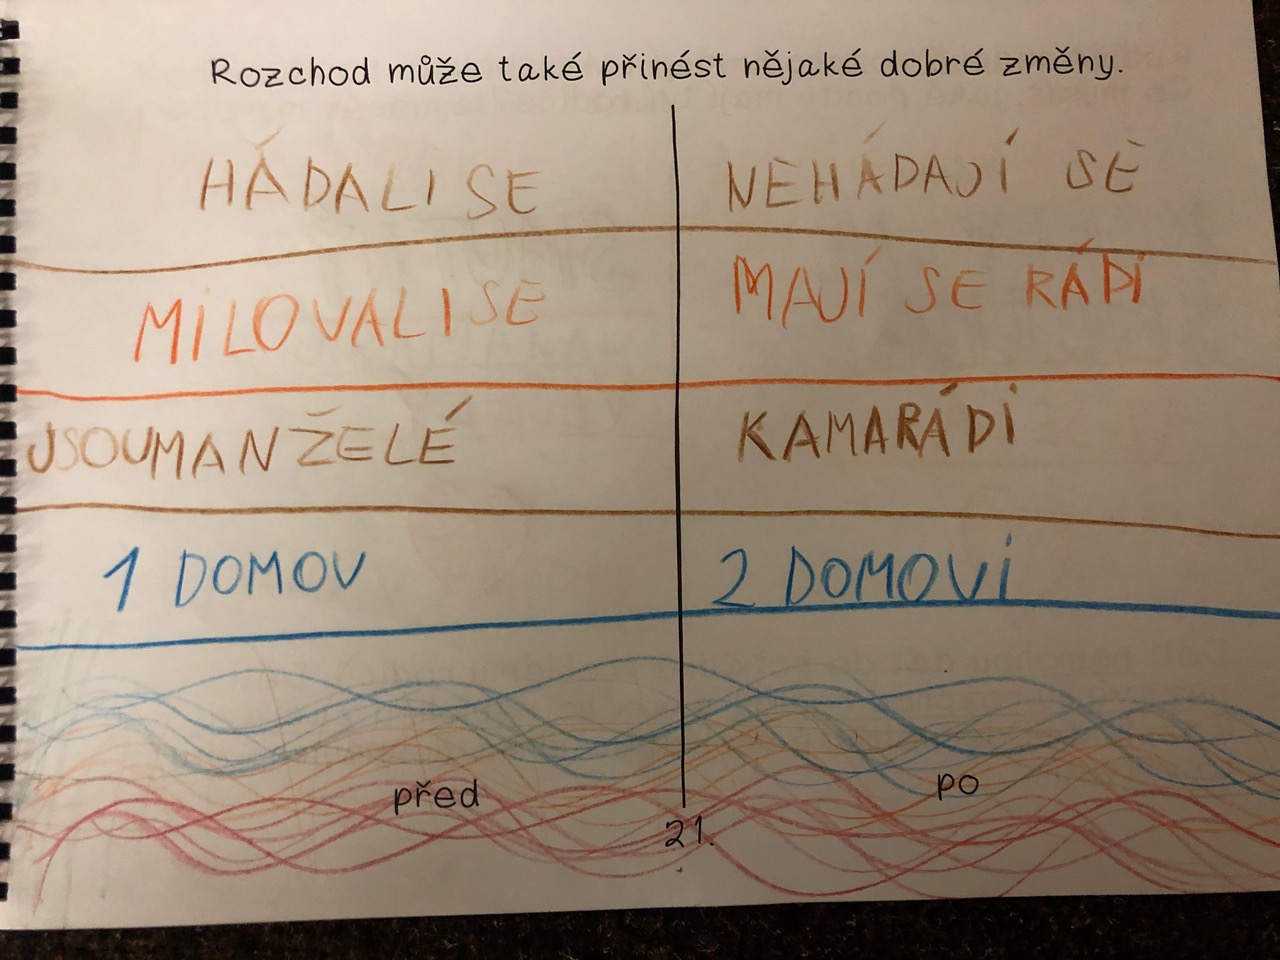 Rozchod může také přinést nějaké dobré změny.
HÁDALI SE NEHÁDAJÍ SE
MILOVALI SE MAJÍ SE RÁDI
JSOU MANŽELÉ KAMARÁDI
1 DOMOV 2 DOMOVI
před po
21.